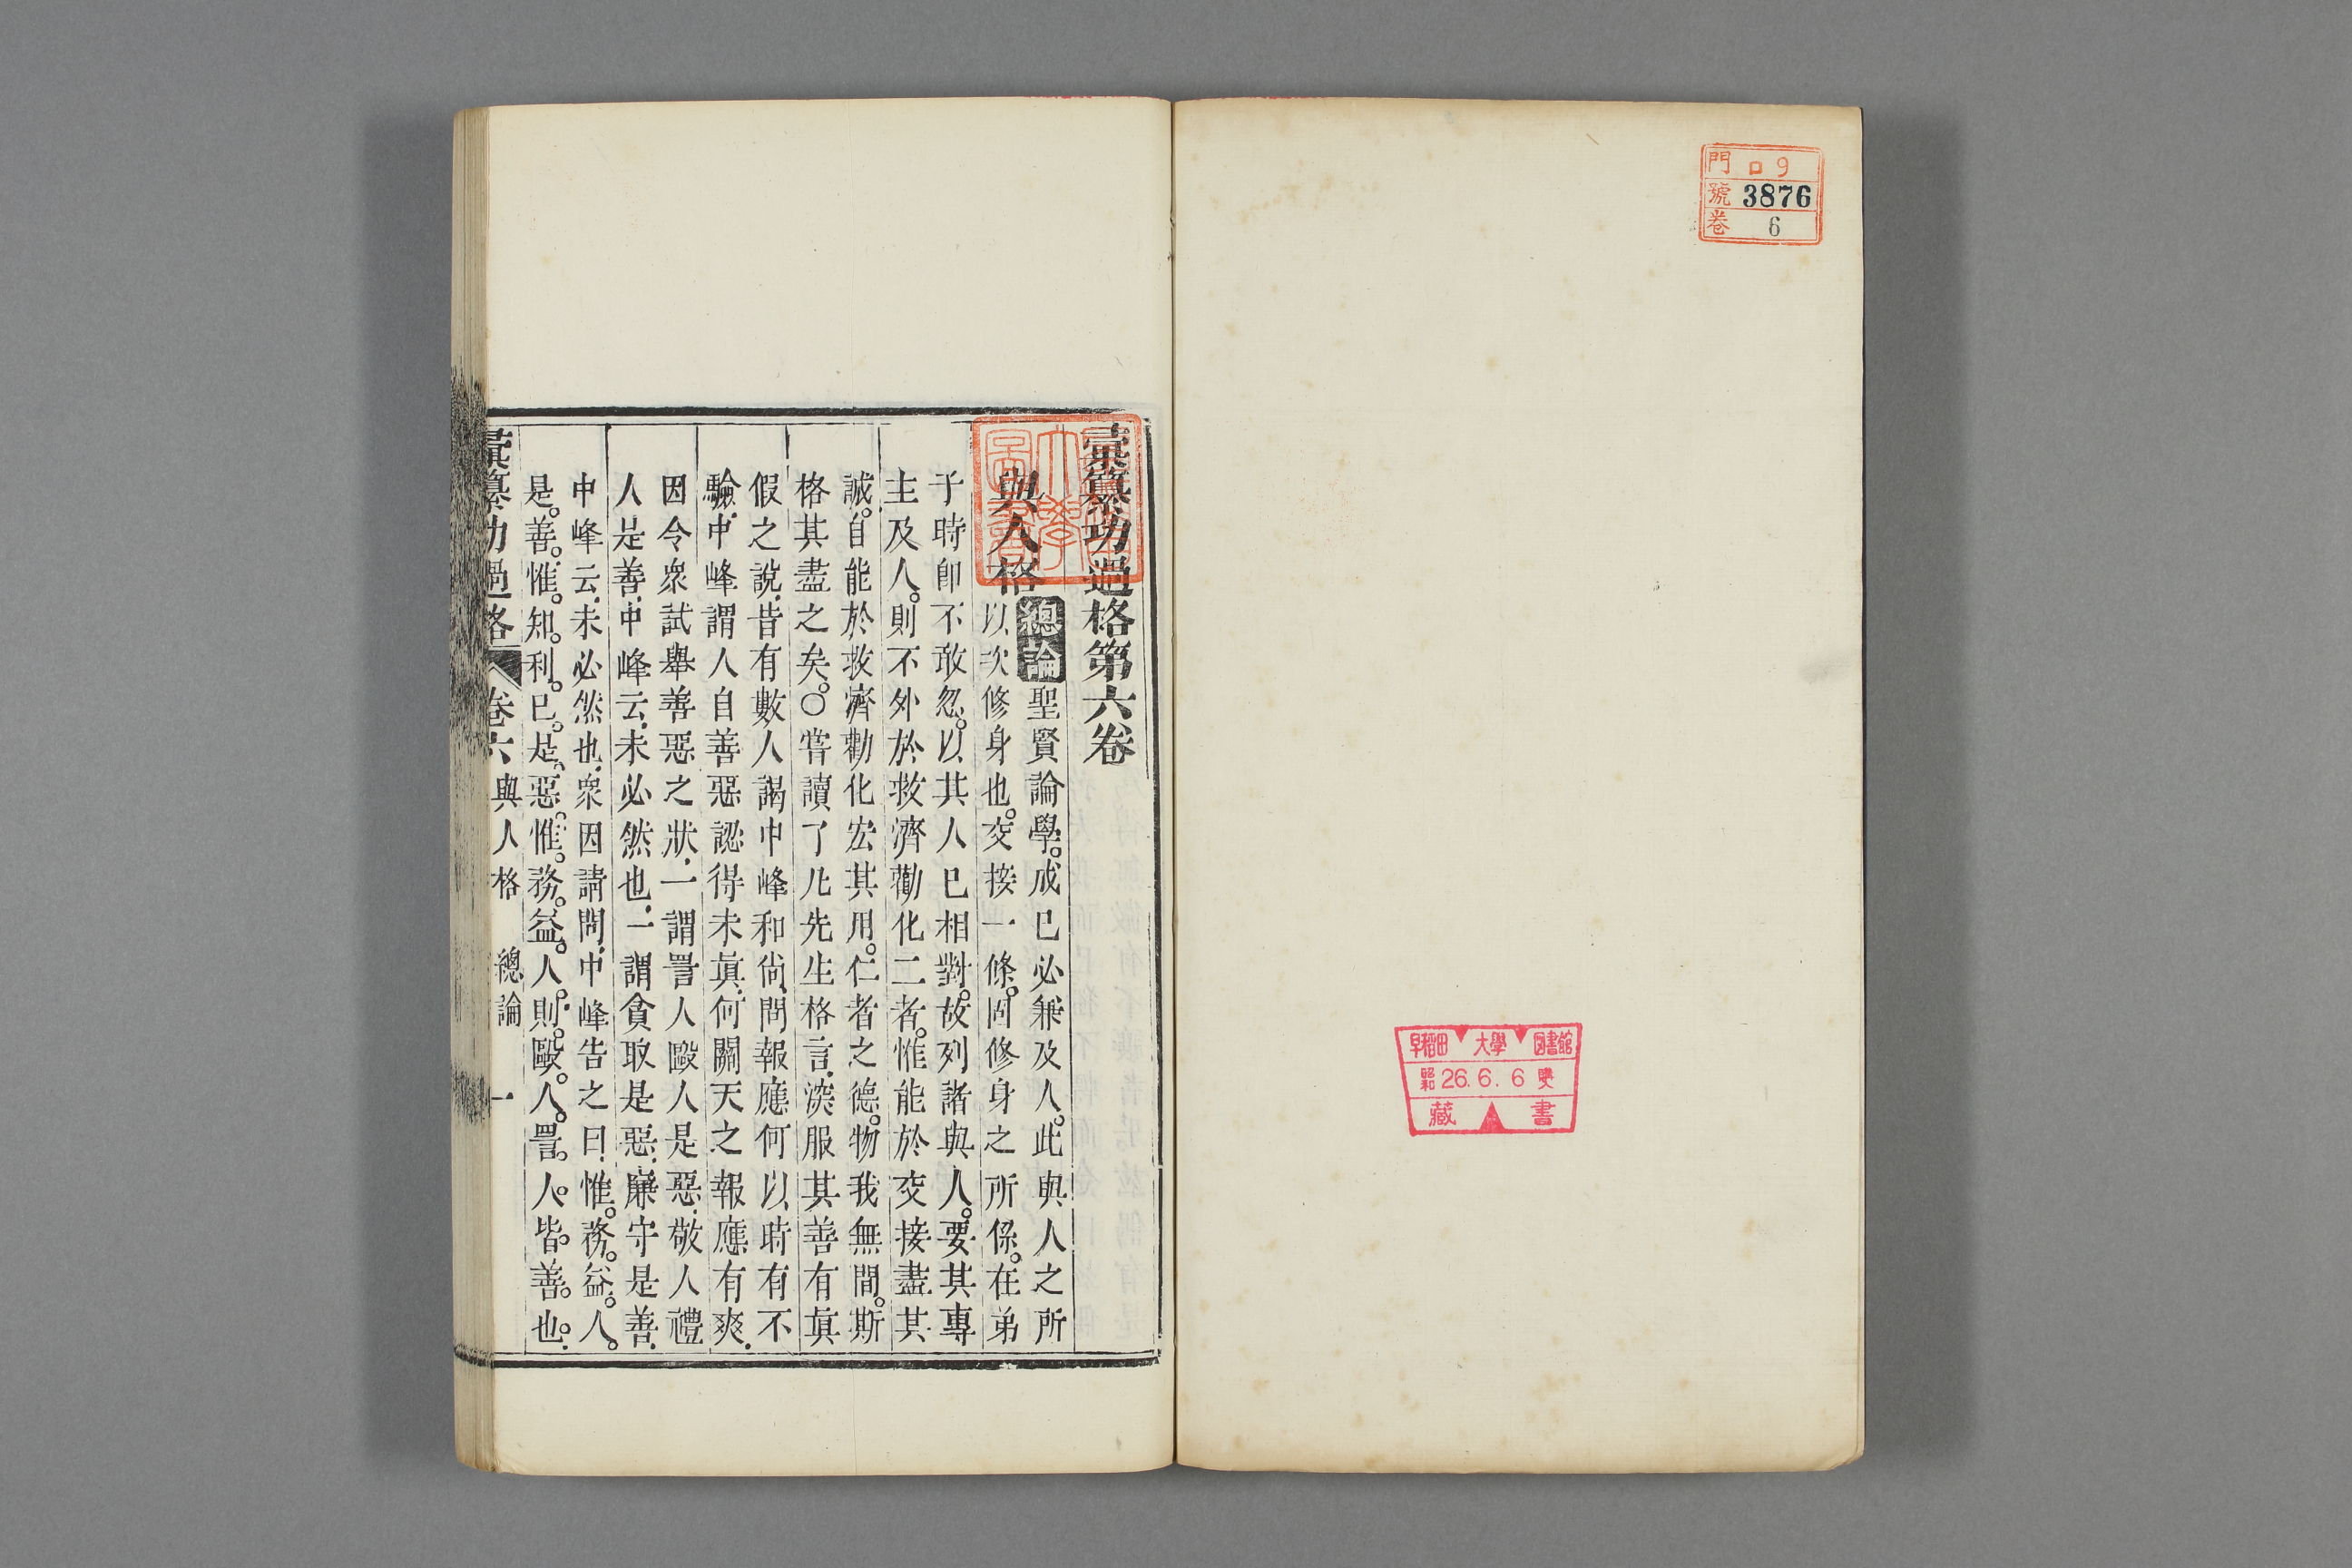 門 ロ9
號 3876
卷 6
早稻田 大學 図書館
昭和 26.6.6 受
藏 書
彙纂功過格第六卷
與人格
總論 聖賢論學。成已必兼及人。此與人之所
以次修身也。交接一條。固修身之所係。在弟
子時卽不敢忽。以其人已相對。故列諸與人。要其專
主及人。則不外於救濟勸化二者。惟能於交接盡其
誠。自能於救濟勸化宏其用。仁者之德。物我無間。斯
格其盡之矣。○嘗讀了凡先生格言、深服其善有眞
假之說、昔有數人謁中峰和尚、問報應何以時有不
驗、中峰謂人自善惡認得未眞、何關天之報應有爽、
因令衆試舉善惡之狀、一謂詈人毆人是惡、敬人禮
人是善、中峰云、未必然也、一謂貪取是惡、廉守是善、
中峰云、未必然也、衆因請問、中峰告之曰、惟。務。益。人。
是。善。惟。知。利。已。是。惡。惟。務。益。人。則。毆。人。詈。人。皆。善。也。
彙纂功過格 卷六 與人格 總論 一